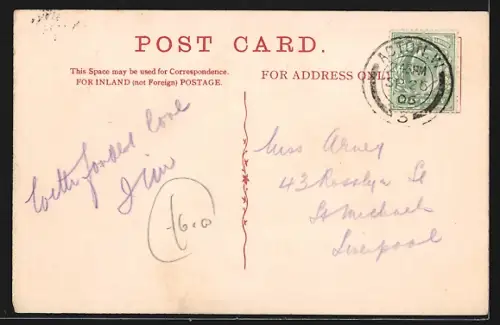 POST CARD.
This Space may be used for Correspondence.
FOR INLAND (not Foreign) POSTAGE.
FOR ADDRESS ONLY
ACTON. W
SP 26
06
3
With fondest love
Jim
6.0
Miss Arney
43 Rosslyn St
St Michaels
Liverpool